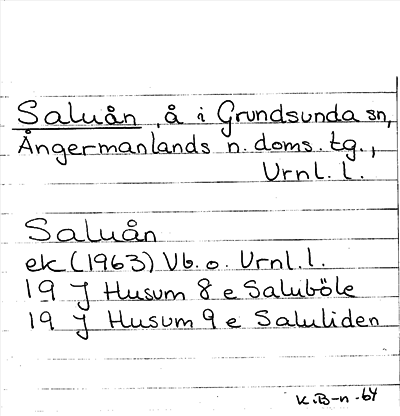 Saluån, å i Grundsunda sn,
Ångermanlands n. doms. tg.,
Vrnl. l.
Saluån
ek (1963) Vb. o. Vrnl. l.
19 J Husum 8 e Saluböle
19 J Husum 9 e Saluliden
K.B-n -64